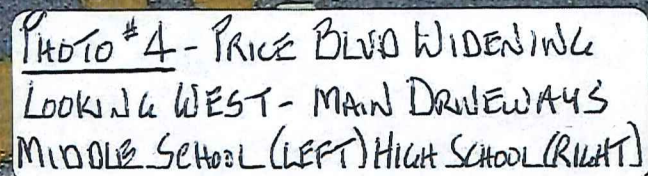 PHOTO #4 - PRICE BLVD WIDENING
LOOKING WEST - MAIN DRIVEWAYS
MIDDLE SCHOOL (LEFT) HIGH SCHOOL (RIGHT)